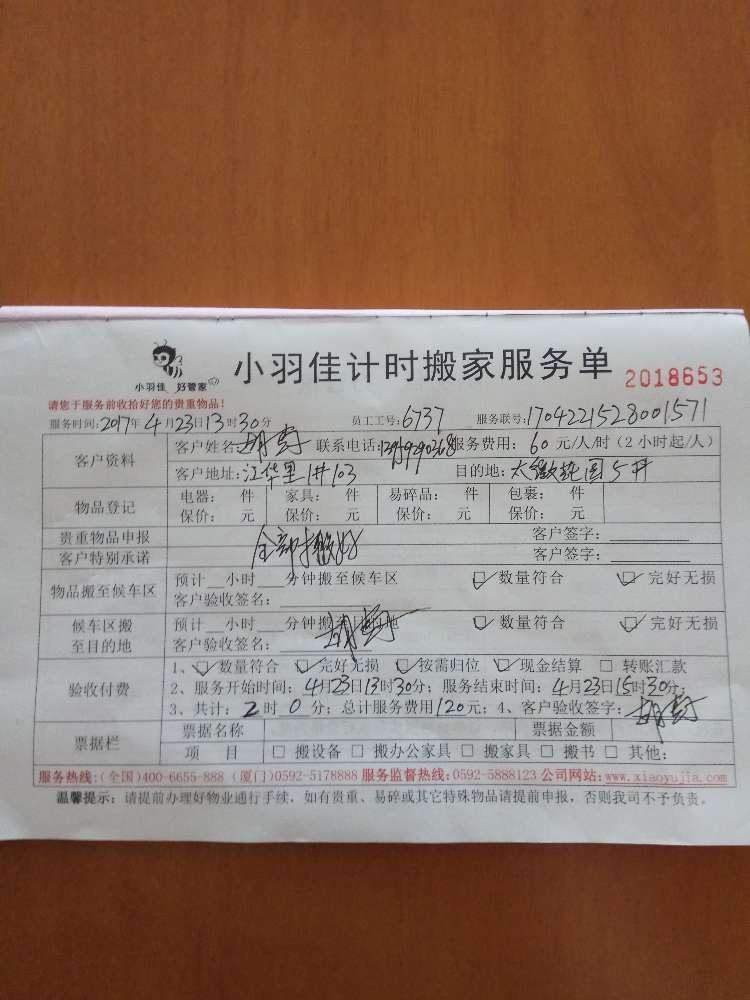 小羽佳 好管家
小羽佳计时搬家服务单 2018653
请您于服务前收拾好您的贵重物品!
服务时间:2017年4月23日13时30分 员工工号:6737 服务联号:1704221528001571
客户资料
客户姓名: 联系电话: 服务费用:60元/人/时(2小时起/人)
客户地址:江华里1#103 目的地: 5#
物品登记
电器: 件 家具: 件 易碎品: 件 包裹: 件
保价: 元 保价: 元 保价: 元 保价: 元
贵重物品申报 客户签字:
全部搬好
客户特别承诺 客户签字:
物品搬至候车区
预计__小时__分钟搬至候车区 ☑数量符合 ☑完好无损
客户验收签名:
候车区搬
至目的地
预计__小时__分钟搬至目的地 ☑数量符合 ☑完好无损
客户验收签名:
验收付费
1、☑数量符合 ☑完好无损 ☑按需归位 ☑现金结算 □转账汇款
2、服务开始时间:4月23日13时30分;服务结束时间:4月23日15时30分;
3、共计:2时0分;总计服务费用120元;4、客户验收签字:
票据栏
票据名称 票据金额
项 目 □搬设备 □搬办公家具 □搬家具 □搬书 □其他:
服务热线:(全国)400-6655-888 (厦门)0592-5178888 服务监督热线:0592-5888123 公司网站:www.xiaoyujia.com
温馨提示:请提前办理好物业通行手续,如有贵重、易碎或其它特殊物品请提前申报,否则我司不予负责。